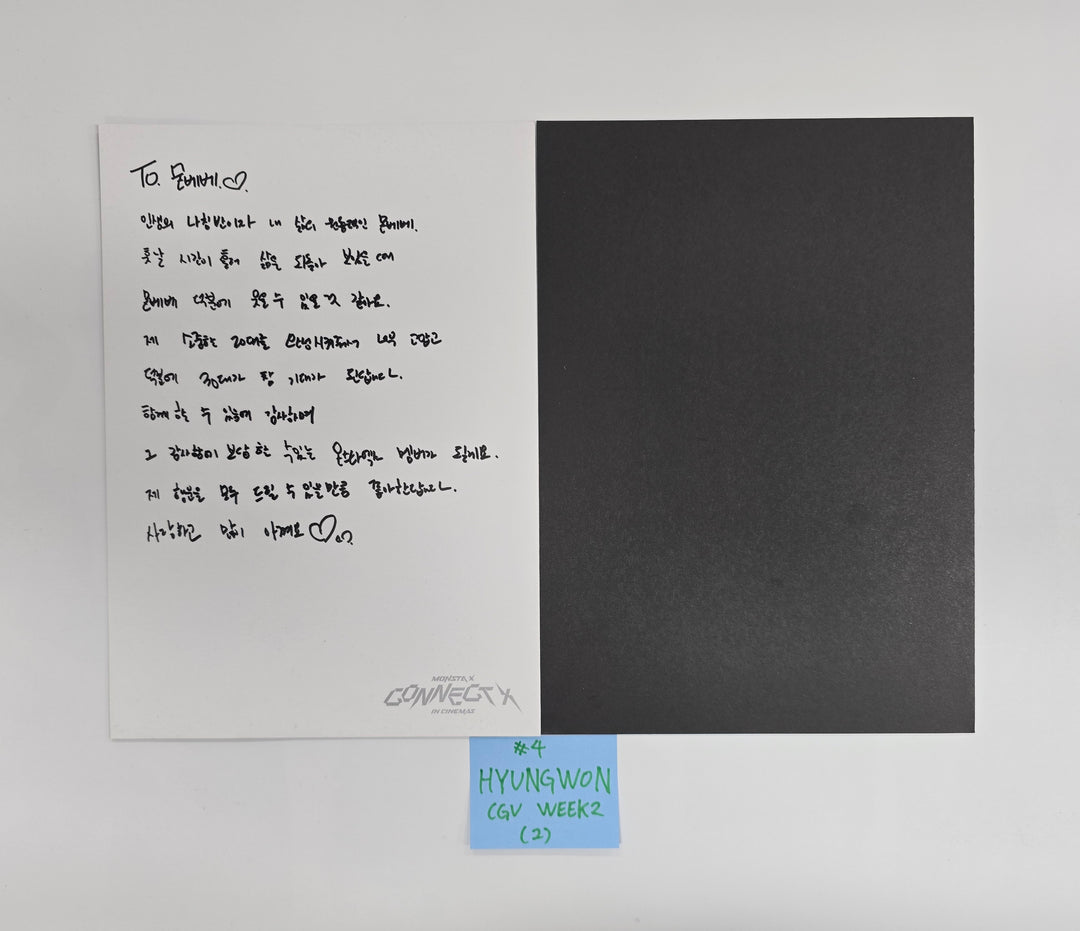 To. 몬베베.♡.
인생의 나침반이자 내 삶의 원동력인 몬베베.
훗날 시간이 흘러 삶을 되돌아 보았을 때
몬베베 덕분에 웃을 수 있을 것 같아요.
제 소중한 20대를 완성시켜줘서 너무 고맙고
덕분에 30대가 참 기대가 된답니다.
함께 할 수 있음에 감사하며
그 감사함에 보답 할 수 있는 몬스타엑스 멤버가 될게요.
제 행운을 모두 드릴 수 있을만큼 좋아한답니다.
사랑하고 많이 아껴요♡
MONSTA X
CONNECT X
IN CINEMAS
#4
HYUNGWON
CGV WEEK2
(2)